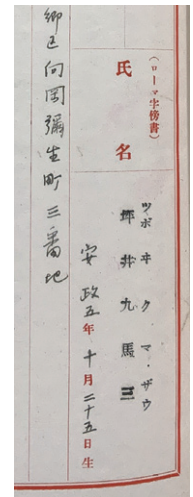 (ローマ字傍書)
氏名
ツボヰ クマ・ザウ
坪井九馬三
安政五年十月二十五日生
郷区向岡彌生町三番地